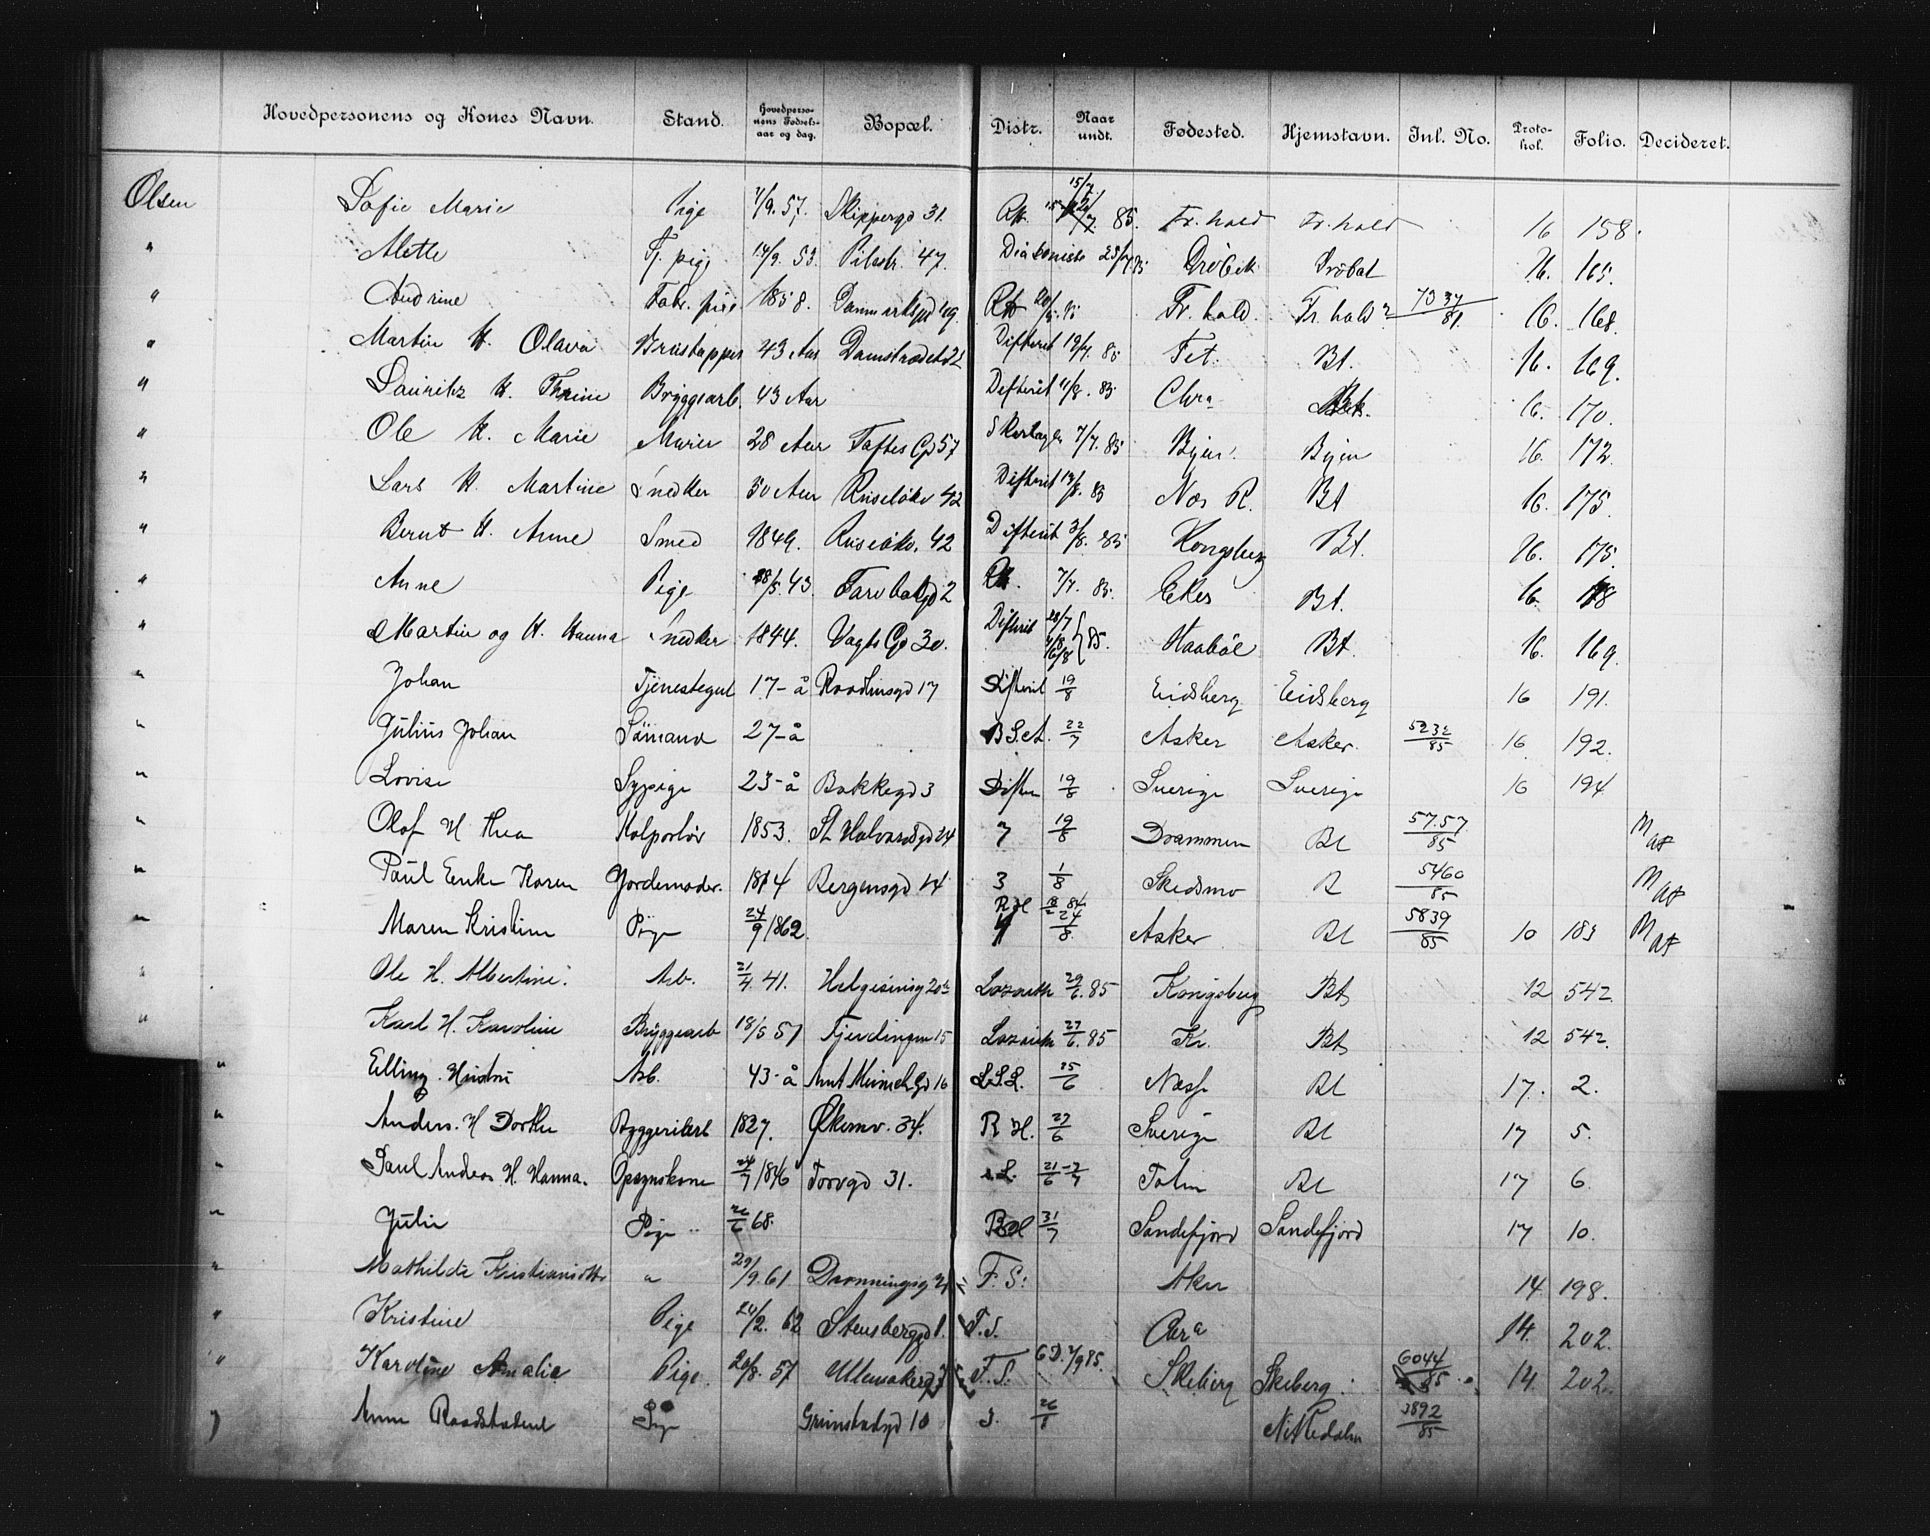 Hovedpersonens og Kones Navn. Stand. Hovedpersonens Fødselsaar og dag. Bopæl. Distr. Naar undt. Fødested. Hjemstavn. Inl. No. Protokol. Folio. Decideret.
Olsen Sofie Marie Pige 7/9. 57. Skippergd 31. RH. 85. Fr. hald Fr. hald 16 158.
" Mette Tj. pige 14/9. 53. Pilestr. 47. Drøbak Drøbak 16. 165.
" Andrine Fabr. pige 1858. Danmarksgd 49. RH Fr. hald. Fr. hald? 7337/81. 16. 168.
" Martin H. Olava 43 Aar Damstrædet 21 Difterit 19/7. 85 Fet. Bt. 16. 169.
" Lauritz H. Thrine Bryggearb. 43 Aar Difterit 11/8. 85 Chra 16. 170.
" Ole H. Marie Murer 28 Aar Toftes Gd 57 7/7. 85 Byen. Byen 16. 172.
" Lars H. Martine Snedker 30 Aar Ruseløkv 42 Difterit 19/8. 85 Næs R. Bt 16. 175.
" Bernt H. Anne Smed 1849. Ruseløkv. 42 Difterit 3/8. 85 Kongsberg Bt. 16. 175.
" Anne Pige 28/5. 43. 2 RH. 7/7. 85. Eker Bt. 16. 18
" Martin og H. Hanna Snedker 1844. Vogts Gd 30. Difterit 28/7 4/8 16/8 } 85. Haabøl Bt. 16. 169.
" Johan Tjenestegut 17-å 17 Difterit 19/8 Eidsberg Eidsberg 16 191.
" Julius Johan Sømand 27-å 22/7 Asker Asker. 5232/85 16 192.
" Lovise Sypige 23-å Bakkegd 3 Difter 19/8 Sverige Sverige 16 194
" Olof H Thea Kolportør 1853. St Halvardsgd 24 7 19/8 Drammen Bt 57.57/85 M
" Paul Enke Karen Jordemoder. 1814 Bergensgd 14 3 1/8 Skedsmo B 5460/85 M
" Maren Kristine Pige 24/9 1862. RH 84 24/8 Asker Bt 5839/85 10 183 M
" Ole H. Albertine. Arb. 21/4. 41. Helgesensg 20 Lazareth 29/6. 85 Kongsberg Bt 12 542.
" Karl H. Karoline Bryggearb 18/5 51 Fjerdingen 15 Lazareth 27/6. 85 Kr. Bt 12 542.
" Elling. Hustru Arb. 43-å Amt Meinich Gd 16 L.S.L. 25/6 Næss Bt 17. 2.
" Anders. H Dorthe Byggeriarb 1827. Økernv. 34. R H. 27/6 Sverige Bt 17 5.
" Paul Andreas H. Hanna. Opsynskone 24/7 1846 Torvgd 31. 21/6 - 2/7 Bt 17 6.
" Julie Pige 68. 31/7 Sandefjord Sandefjord 17 10.
" Mathilde Kristiansdttr " 29/9. 61 Dronningsg F. S. Aker 14 198.
" Kristine Pige 20/2. 62 Stensberggd 1. F. S. Chra 14. 202.
" Karoline Amalie Pige. 20/8. 57 F. S. 6D. 1/9 85. Skeberg Skeberg. 6044/85. 14. 202.
" Anne Raadstadand Pige Grimstadgd 10 3. 26/8 Nittedalen 3892/85